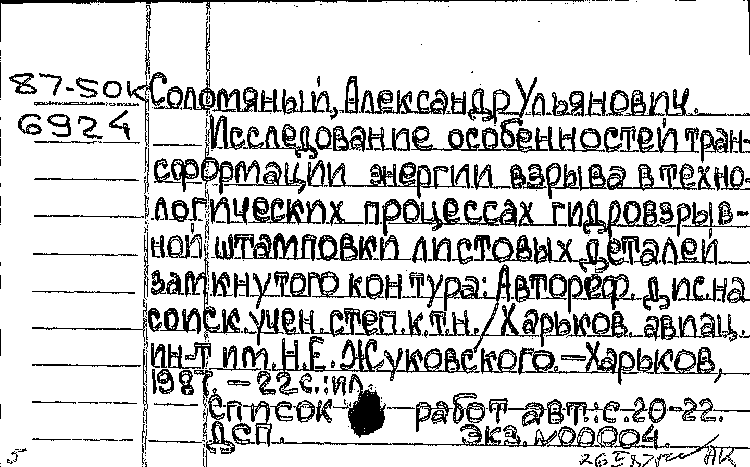 87-50к Соломяный, Александр Ульянович.
6924 Исследование особенностей тран-
сформации энергии взрыва в техно-
логических процессах гидровзрыв-
ной штамповки листовых деталей
замкнутого контура: Автореф. дис. на
соиск. учен. степ. к.т.н. / Харьков. авиац.
ин-т им. Н.Е. Жуковского. — Харьков,
1987. — 22 с.: ил.
Список работ авт.: с. 20-22.
ДСП. Экз. №00004.
5 АК